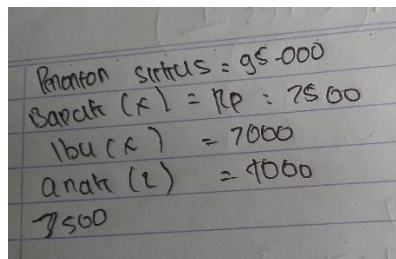 Penonton sirkus = 95.000
Bapak (x) = Rp : 7500
Ibu (x) = 7000
anak (2) = 4000
7500